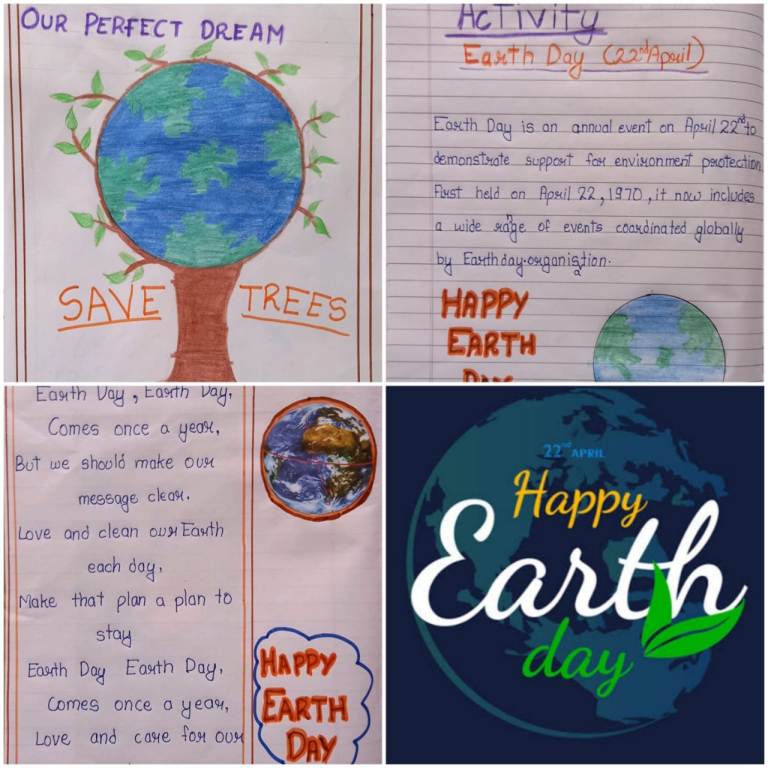 OUR PERFECT DREAM
SAVE TREES
Activity
Earth Day (22nd April)
Earth Day is an annual event on April 22nd to
demonstrate support for environment protection
First held on April 22, 1970, it now includes
a wide range of events coordinated globally
by Earthday.organisation.
HAPPY
EARTH
DAY
Earth Day, Earth Day,
Comes once a year,
But we should make our
message clear.
Love and clean our Earth
each day,
Make that plan a plan to
stay
Earth Day Earth Day,
Comes once a year,
Love and care for our
HAPPY
EARTH
DAY
22nd APRIL
Happy
Earth
day